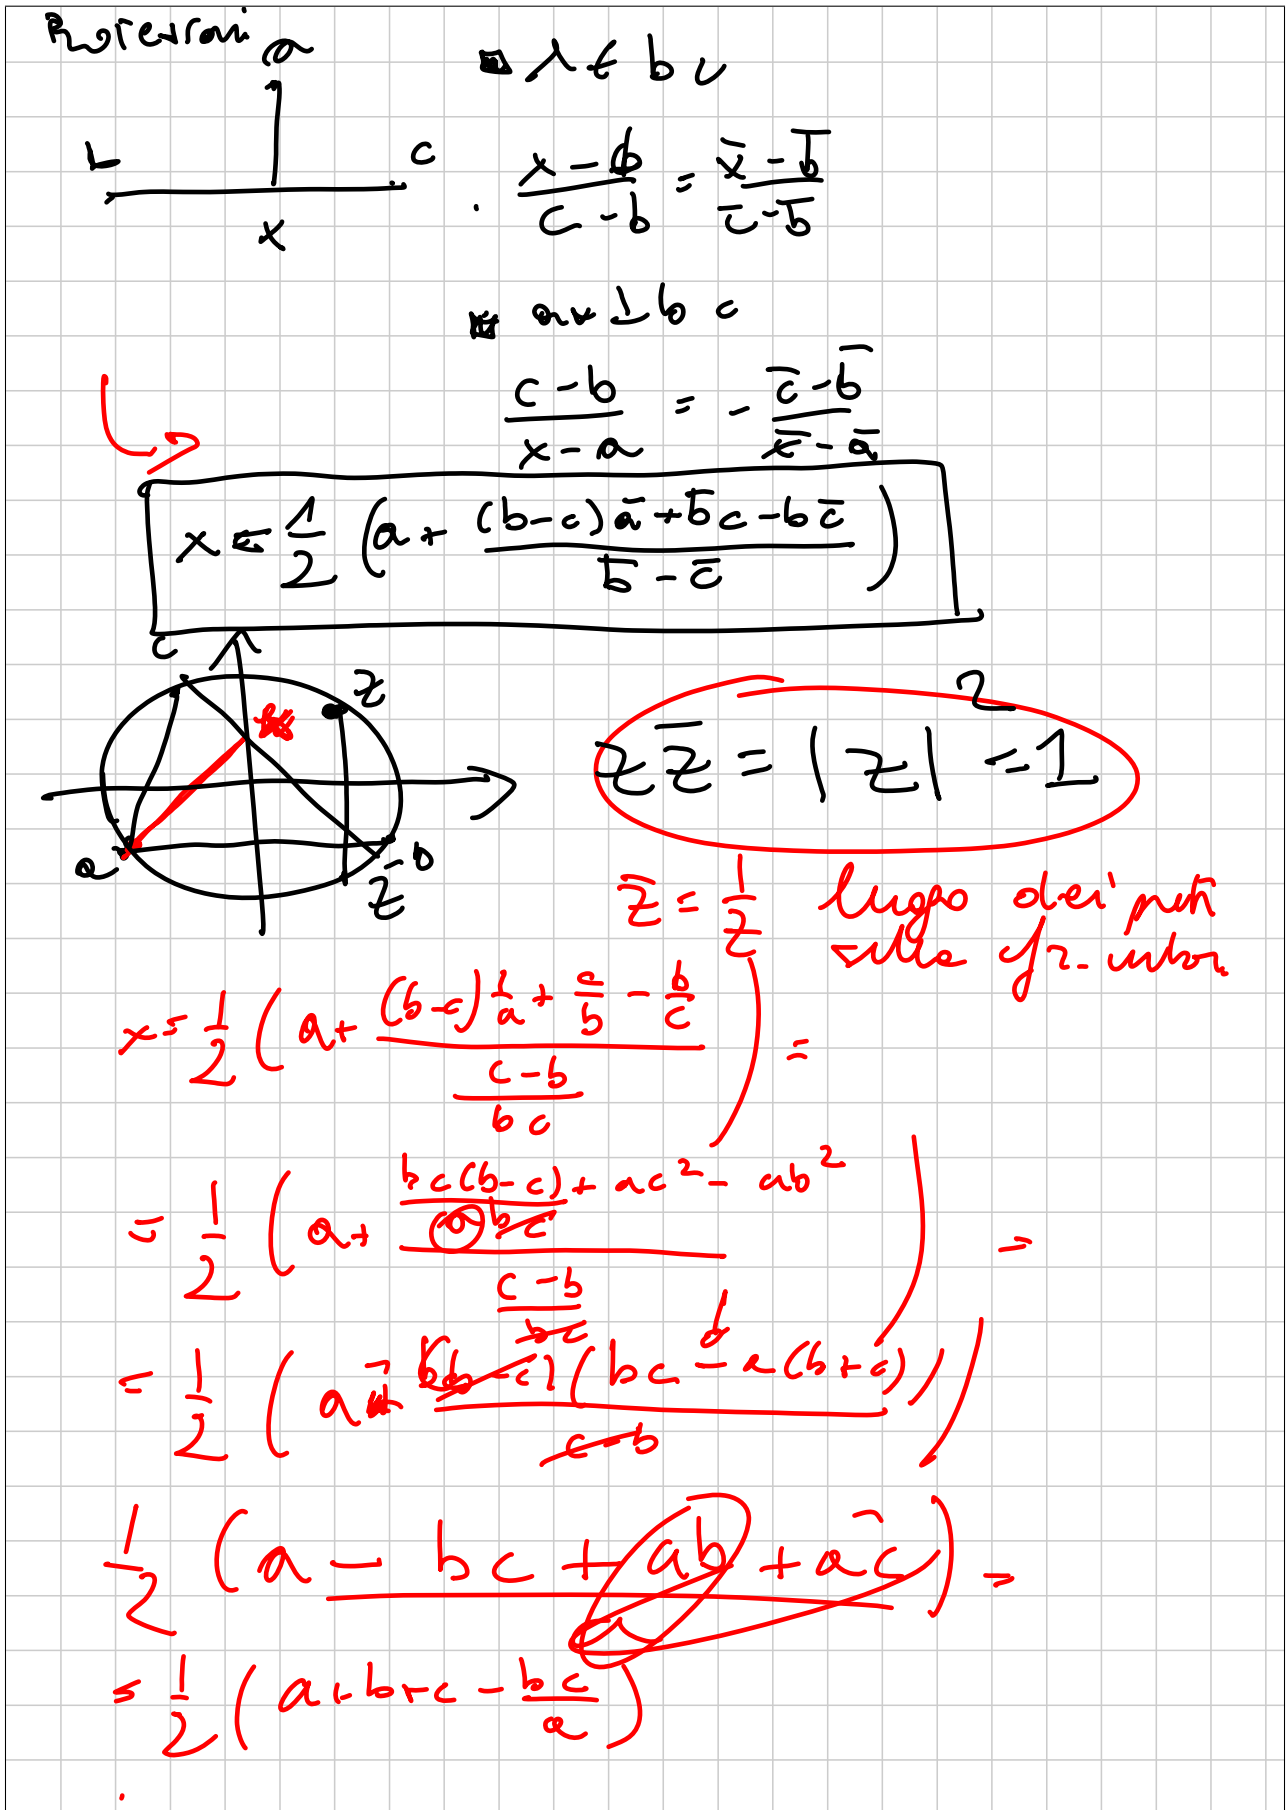 Proiezioni
a
b c
x
x ∈ bc
\frac{x-b}{c-b} = \frac{\bar{x}-\bar{b}}{\bar{c}-\bar{b}}
ax ⊥ bc
\frac{c-b}{x-a} = -\frac{\bar{c}-\bar{b}}{\bar{x}-\bar{a}}
x = \frac{1}{2} (a + \frac{(b-c)\bar{a}+\bar{b}c-b\bar{c}}{\bar{b}-\bar{c}})
c
z
a
b
\bar{z}
z\bar{z} = |z|^2 = 1
\bar{z} = \frac{1}{z} luogo dei punti
sulla cfr. unitar.
x = \frac{1}{2} (a + \frac{(b-c)\frac{1}{a} + \frac{c}{b} - \frac{b}{c}}{\frac{c-b}{bc}}) =
= \frac{1}{2} (a + \frac{\frac{bc(b-c)+ac^2-ab^2}{abc}}{\frac{c-b}{bc}}) =
= \frac{1}{2} (a - \frac{(b-c)(bc-a(b+c))}{c-b})
\frac{1}{2} (a \frac{-bc+ab+ac}{a}) =
= \frac{1}{2} (a+b+c-\frac{bc}{a})